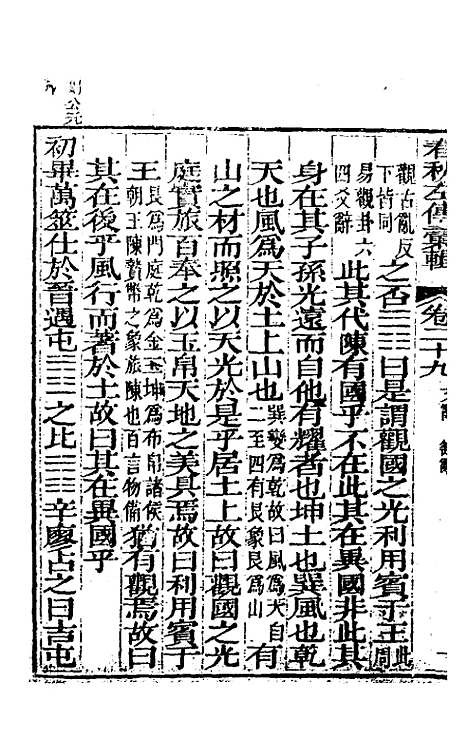 春秋左傳彙輯 卷二十九
觀古亂反
下皆同
之否䷋曰是謂觀國之光利用賓于王
此周
易觀卦六
四爻辭
此其代陳有國乎不在此其在異國非此其
身在其子孫光遠而自他有耀者也坤土也巽風也乾
天也風爲天於土上山也
巽變爲乾故曰風爲天自
二至四有艮象艮爲山
有
山之材而照之以天光於是乎居土上故曰觀國之光
庭實旅百奉之以玉帛天地之美具焉故曰利用賓于
王
艮爲門庭乾爲金玉坤爲布帛諸侯
朝王陳贄幣之象旅陳也百言物備
猶有觀焉故曰
其在後乎風行而著於土故曰其在異國乎
初畢萬筮仕於晉遇屯䷂之比䷇辛廖占之曰吉屯
閔公元